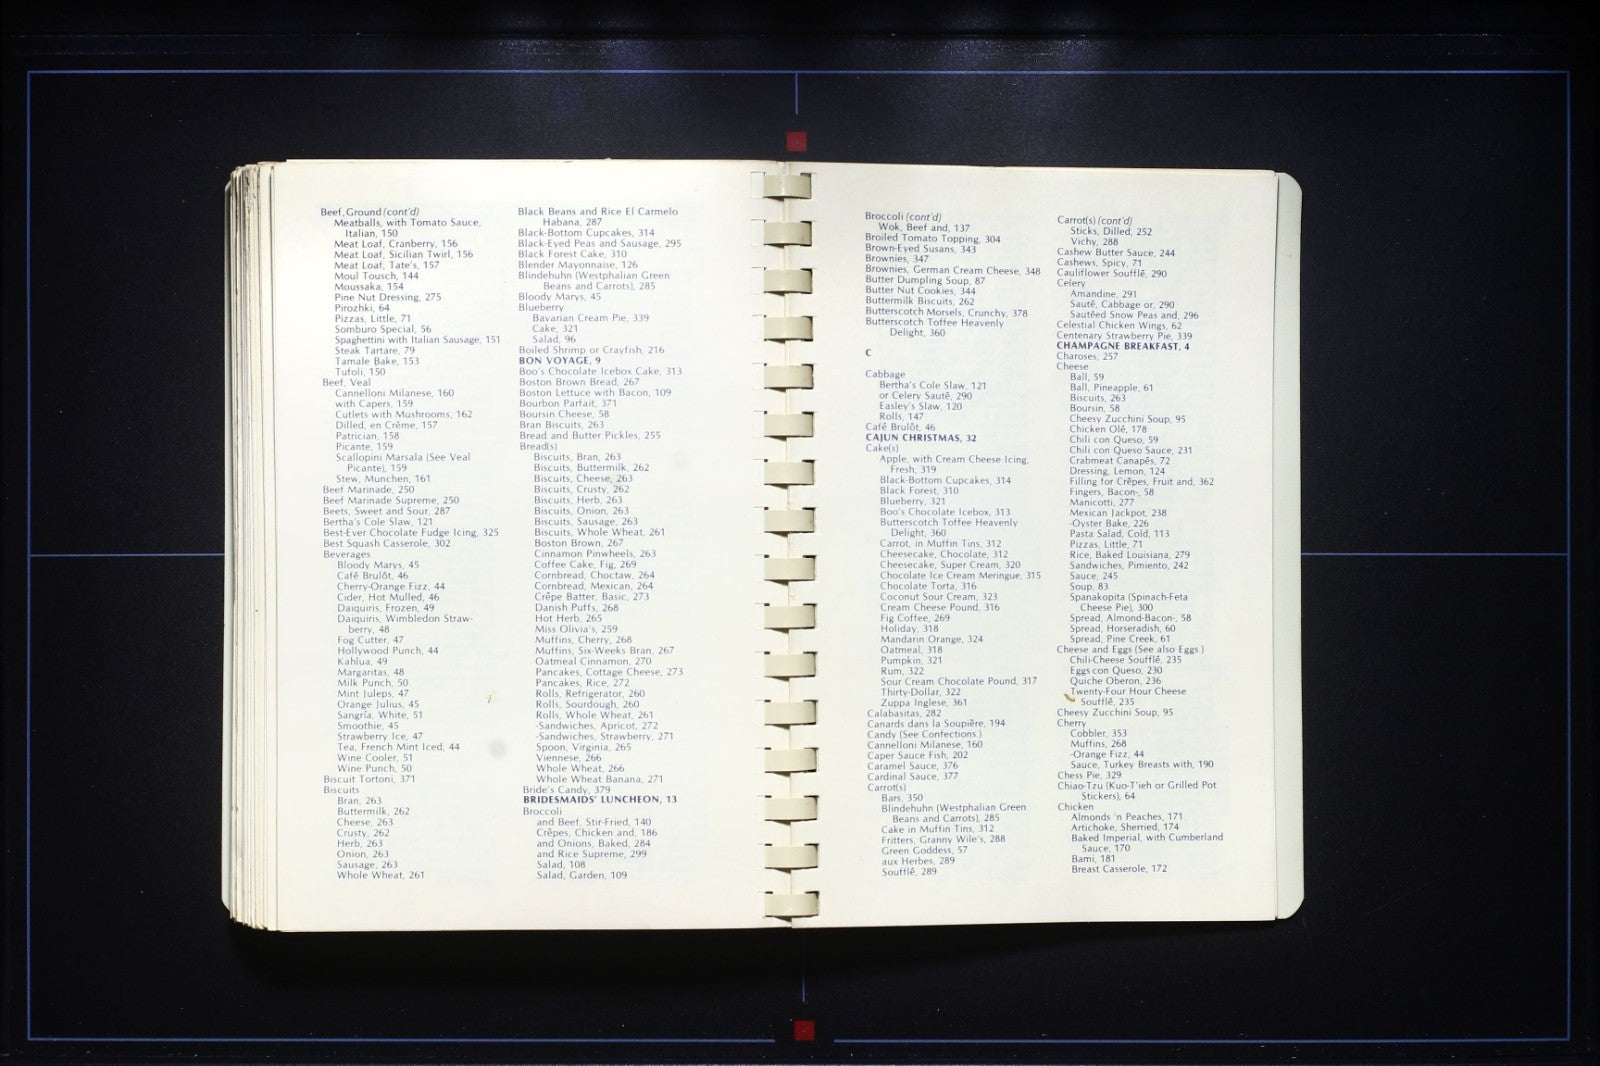 Beef, Ground (cont'd)
Meatballs, with Tomato Sauce,
Italian, 150
Meat Loaf, Cranberry, 156
Meat Loaf, Sicilian Twirl, 156
Meat Loaf, Tate's, 157
Moul Tousch, 144
Moussaka, 154
Pine Nut Dressing, 275
Pirozhki, 64
Pizzas, Little, 71
Somburo Special, 56
Spaghettini with Italian Sausage, 151
Steak Tartare, 79
Tamale Bake, 153
Tufoli, 150
Beef, Veal
Cannelloni Milanese, 160
with Capers, 159
Cutlets with Mushrooms, 162
Dilled, en Crême, 157
Patrician, 158
Picante, 159
Scallopini Marsala (See Veal
Picante), 159
Stew, Munchen, 161
Beef Marinade, 250
Beef Marinade Supreme, 250
Beets, Sweet and Sour, 287
Bertha's Cole Slaw, 121
Best-Ever Chocolate Fudge Icing, 325
Best Squash Casserole, 302
Beverages
Bloody Marys, 45
Café Brulôt, 46
Cherry-Orange Fizz, 44
Cider, Hot Mulled, 46
Daiquiris, Frozen, 49
Daiquiris, Wimbledon Straw-
berry, 48
Fog Cutter, 47
Hollywood Punch, 44
Kahlua, 49
Margaritas, 48
Milk Punch, 50
Mint Juleps, 47
Orange Julius, 45
Sangría, White, 51
Smoothie, 45
Strawberry Ice, 47
Tea, French Mint Iced, 44
Wine Cooler, 51
Wine Punch, 50
Biscuit Tortoni, 371
Biscuits
Bran, 263
Buttermilk, 262
Cheese, 263
Crusty, 262
Herb, 263
Onion, 263
Sausage, 263
Whole Wheat, 261
Black Beans and Rice El Carmelo
Habana, 287
Black-Bottom Cupcakes, 314
Black-Eyed Peas and Sausage, 295
Black Forest Cake, 310
Blender Mayonnaise, 126
Blindehuhn (Westphalian Green
Beans and Carrots), 285
Bloody Marys, 45
Blueberry
Bavarian Cream Pie, 339
Cake, 321
Salad, 96
Boiled Shrimp or Crayfish, 216
BON VOYAGE, 9
Boo's Chocolate Icebox Cake, 313
Boston Brown Bread, 267
Boston Lettuce with Bacon, 109
Bourbon Parfait, 371
Boursin Cheese, 58
Bran Biscuits, 263
Bread and Butter Pickles, 255
Bread(s)
Biscuits, Bran, 263
Biscuits, Buttermilk, 262
Biscuits, Cheese, 263
Biscuits, Crusty, 262
Biscuits, Herb, 263
Biscuits, Onion, 263
Biscuits, Sausage, 263
Biscuits, Whole Wheat, 261
Boston Brown, 267
Cinnamon Pinwheels, 263
Coffee Cake, Fig, 269
Cornbread, Choctaw, 264
Cornbread, Mexican, 264
Crêpe Batter, Basic, 273
Danish Puffs, 268
Hot Herb, 265
Miss Olivia's, 259
Muffins, Cherry, 268
Muffins, Six-Weeks Bran, 267
Oatmeal Cinnamon, 270
Pancakes, Cottage Cheese, 273
Pancakes, Rice, 272
Rolls, Refrigerator, 260
Rolls, Sourdough, 260
Rolls, Whole Wheat, 261
-Sandwiches, Apricot, 272
-Sandwiches, Strawberry, 271
Spoon, Virginia, 265
Viennese, 266
Whole Wheat, 266
Whole Wheat Banana, 271
Bride's Candy, 379
BRIDESMAIDS' LUNCHEON, 13
Broccoli
and Beef, Stir-Fried, 140
Crêpes, Chicken and, 186
and Onions, Baked, 284
and Rice Supreme, 299
Salad, 108
Salad, Garden, 109
Broccoli (cont'd)
Wok, Beef and, 137
Broiled Tomato Topping, 304
Brown-Eyed Susans, 343
Brownies, 347
Brownies, German Cream Cheese, 348
Butter Dumpling Soup, 87
Butter Nut Cookies, 344
Buttermilk Biscuits, 262
Butterscotch Morsels, Crunchy, 378
Butterscotch Toffee Heavenly
Delight, 360
C
Cabbage
Bertha's Cole Slaw, 121
or Celery Sauté, 290
Easley's Slaw, 120
Rolls, 147
Café Brulôt, 46
CAJUN CHRISTMAS, 32
Cake(s)
Apple, with Cream Cheese Icing,
Fresh, 319
Black-Bottom Cupcakes, 314
Black Forest, 310
Blueberry, 321
Boo's Chocolate Icebox, 313
Butterscotch Toffee Heavenly
Delight, 360
Carrot, in Muffin Tins, 312
Cheesecake, Chocolate, 312
Cheesecake, Super Cream, 320
Chocolate Ice Cream Meringue, 315
Chocolate Torta, 316
Coconut Sour Cream, 323
Cream Cheese Pound, 316
Fig Coffee, 269
Holiday, 318
Mandarin Orange, 324
Oatmeal, 318
Pumpkin, 321
Rum, 322
Sour Cream Chocolate Pound, 317
Thirty-Dollar, 322
Zuppa Inglese, 361
Calabasitas, 282
Canards dans la Soupière, 194
Candy (See Confections.)
Cannelloni Milanese, 160
Caper Sauce Fish, 202
Caramel Sauce, 376
Cardinal Sauce, 377
Carrot(s)
Bars, 350
Blindehuhn (Westphalian Green
Beans and Carrots), 285
Cake in Muffin Tins, 312
Fritters, Granny Wile's, 288
Green Goddess, 57
aux Herbes, 289
Soufflé, 289
Carrot(s) (cont'd)
Sticks, Dilled, 252
Vichy, 288
Cashew Butter Sauce, 244
Cashews, Spicy, 71
Cauliflower Soufflé, 290
Celery
Amandine, 291
Sauté, Cabbage or, 290
Sautéed Snow Peas and, 296
Celestial Chicken Wings, 62
Centenary Strawberry Pie, 339
CHAMPAGNE BREAKFAST, 4
Charoses, 257
Cheese
Ball, 59
Ball, Pineapple, 61
Biscuits, 263
Boursin, 58
Cheesy Zucchini Soup, 95
Chicken Olé, 178
Chili con Queso, 59
Chili con Queso Sauce, 231
Crabmeat Canapés, 72
Dressing, Lemon, 124
Filling for Crêpes, Fruit and, 362
Fingers, Bacon-, 58
Manicotti, 277
Mexican Jackpot, 238
-Oyster Bake, 226
Pasta Salad, Cold, 113
Pizzas, Little, 71
Rice, Baked Louisiana, 279
Sandwiches, Pimiento, 242
Sauce, 245
Soup, 83
Spanakopita (Spinach-Feta
Cheese Pie), 300
Spread, Almond-Bacon-, 58
Spread, Horseradish, 60
Spread, Pine Creek, 61
Cheese and Eggs (See also Eggs.)
Chili-Cheese Soufflé, 235
Eggs con Queso, 230
Quiche Oberon, 236
Twenty-Four Hour Cheese
Soufflé, 235
Cheesy Zucchini Soup, 95
Cherry
Cobbler, 353
Muffins, 268
-Orange Fizz, 44
Sauce, Turkey Breasts with, 190
Chess Pie, 329
Chiao-Tzu (Kuo-T'ieh or Grilled Pot
Stickers), 64
Chicken
Almonds 'n Peaches, 171
Artichoke, Sherried, 174
Baked Imperial, with Cumberland
Sauce, 170
Bami, 181
Breast Casserole, 172